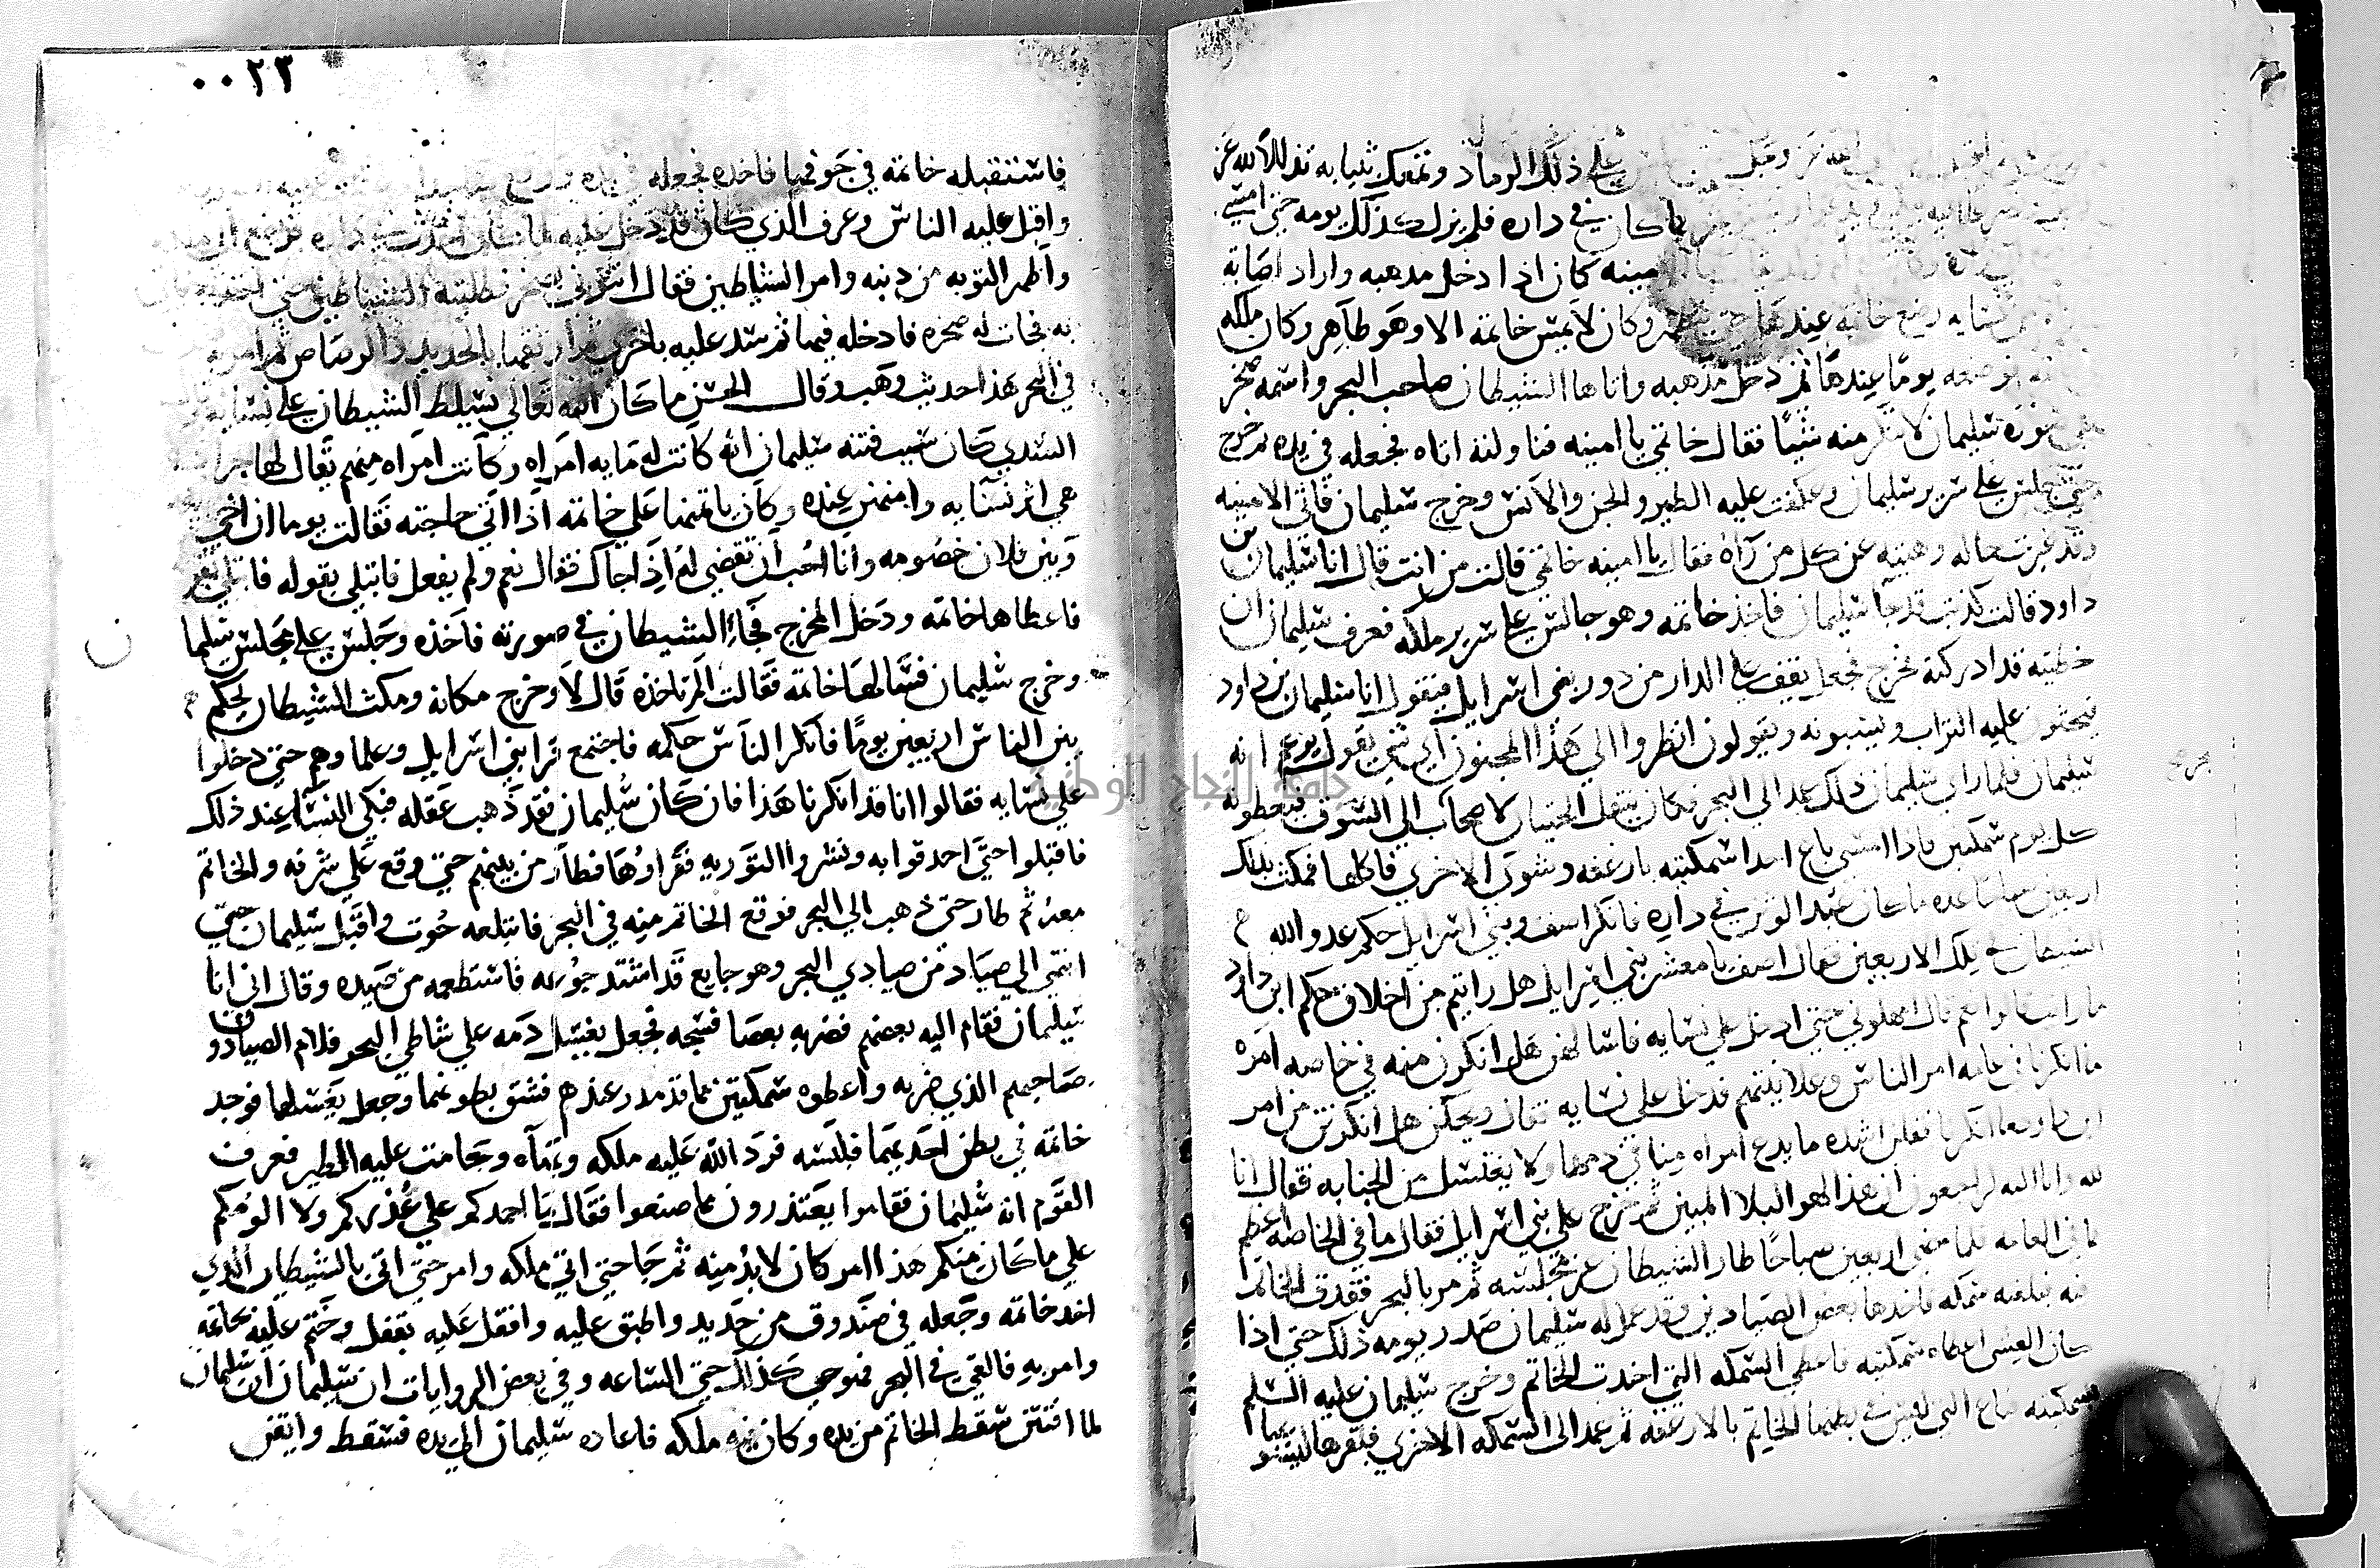 على ذلك الرماد وتمعك بثيابه تذللا لله عز
كان في داره فلم يزل كذلك يومه حتى امسى
الامينه كان اذا دخل مذهبه واراد اصابة
من نسايه وضع خاتمه عندها حتى يتطهر وكان لا يمس خاتمه الا وهو طاهر وكان ملكه
فوضعه يوما عندها ثم دخل مذهبه واتاها الشيطان صاحب البحر واسمه صخر
على صورة سليمان لا تنكر منه شيا فقال خاتمي يا امينه فناولته اياه فجعله في يده ثم خرج
حتى جلس على سرير سليمان وعكفت عليه الطير والجن والانس وخرج سليمان فاتى الامينه
وقد غيرت حاله وهيته عن كل من رآه فقال يا امينه خاتمي قالت من انت قال انا سليمان بن
داود قالت كذبت قد جا سليمان فاخذ خاتمه وهو جالس على سرير ملكه فعرف سليمان ان
خطيته قد ادركته فخرج فجعل يقف على الدار من دور بني اسرايل فيقول انا سليمان بن داود
فيحثون عليه التراب ويسبونه ويقولون انظروا الى هذا المجنون اي شي يقول يزعم انه
سليمان فلما راى سليمان ذلك عمد الى البحر فكان ينقل الحيتان لاصحاب الى السوق فيعطونه
كل يوم سمكتين فاذا امسى باع احدا سمكتيه بارغفه وشوى الاخرى فاكلها فمكث بذلك
اربعين صباحا عده ما كان عبد الوثن في داره فانكر اصف وبني اسرايل حكم عدو الله
الشيطان في تلك الاربعين فقال اصف يا معشر بني اسرايل هل رايتم من اختلاف حكم ابن داود
ما رايت قالوا نعم قال امهلوني حتى ادخل على نسايه فاسالهن هل انكرن منه في خاصه امره
ما انكرنا في عامه امر الناس وعلانيتهم فدخل على نسايه فقال ويحكن هل انكرتن من امر
ابن داود ما انكرنا فقلن اشده ما يدع امراه منا في دمها ولا يغتسل من الجنابه فقال انا
لله وانا اليه راجعون ان هذا لهو البلا المبين ثم خرج على بني اسرايل فقال ما في الخاصه اعظم
مما في العامه فلما مضى اربعين صباحا طار الشيطان عن مجلسه ثم مر بالبحر فقذف الخاتم
فيه فبلعته سمكه فاخذها بعض الصيادين وقد عمل له سليمان صدر يومه ذلك حتى اذا
كان العشى اعطاه سمكتيه فاعطى السمكه التي اخذت الخاتم وخرج سليمان عليه السلم
بسمكتيه فباع التي ليس في بطنها الخاتم بالارغفه ثم عمد الى السمكه الاخرى فبقرها ليشويها
٠٠٢٣
فاستقبله خاتمه في جوفها فاخذه فجعله في يده ووقع
واقبل عليه الناس وعرف الذي كان قد دخل عليه لما كان احدث في داره فرجع الى ملكه
واظهر التوبه من ذنبه وامر الشياطين فقال ايتوني بصخر فطلبته الشياطين حتى اخذته
به فجاب له صخره فادخله فيها ثم سد عليه باخرى ثم اوثقها بالحديد والرصاص ثم امر به
في البحر هذا حديث وهب وقال الحسن ما كان الله تعالى يسلط الشيطان على نسايه
السدي كان سبب فتنه سليمان انه كانت له مايه امراه وكانت امراه منهم يقال لها جراده
هي اثر نسايه وامنهن عنده وكان ياتمنها على خاتمه اذا اتى حاجته فقالت يوما ان اخي
وبين فلان خصومه وانا احب ان تقضي له اذا جاك فقال نعم ولم يفعل فابتلي بقوله
فاعطاها خاتمه ودخل المخرج فجاء الشيطان في صورته فاخذه وجلس على مجلس سليما
ن
وخرج سليمان فسالها خاتمه فقالت الم تاخذه قال لا وخرج مكانه ومكث الشيطان يحكم
بين الناس اربعين يوما فانكر الناس حكمه فاجتمع قرا بني اسرايل وعلماوهم حتى دخلوا
على نسايه فقالوا انا قد انكرنا هذا فان كان سليمان فقد ذهب عقله فبكى النسا عند ذلك
فاقبلوا حتى احدقوا به ونشروا التوريه فقراوها فطار من بينهم حتى وقع على شرفه والخاتم
معه ثم طار حتى ذهب الى البحر فوقع الخاتم منه في البحر فابتلعه حوت واقبل سليمان حتى
انتهى الى صياد من صيادي البحر وهو جايع قد اشتد جوعه فاستطعمه من صيده وقال اني انا
سليمان فقام اليه بعضهم فضربه بعصا فشجه فجعل يغسل دمه على شاطي البحر فلام الصيادون
صاحبهم الذي ضربه واعطوه سمكتين مما قد مذر عندهم فشق بطونهما وجعل يغسلها فوجد
خاتمه في بطن احديهما فلبسه فرد الله عليه ملكه وبهاه وحامت عليه الطير فعرف
القوم انه سليمان فقاموا يعتذرون مما صنعوا فقال ما احمدكم على عذركم ولا الومكم
على ما كان منكم هذا امر كان لا بد منه ثم جا حتى اتى ملكه وامر حتى اتى بالشيطان الذي
اخذ خاتمه وجعله في صندوق من حديد واطبق عليه واقفل عليه بقفل وختم عليه بخاتمه
وامر به فالقي في البحر فهو حي كذلك حتى الساعه وفي بعض الروايات ان سليمان
لما افتتن سقط الخاتم من يده وكان فيه ملكه فاعاده سليمان الى يده فسقط وايقن